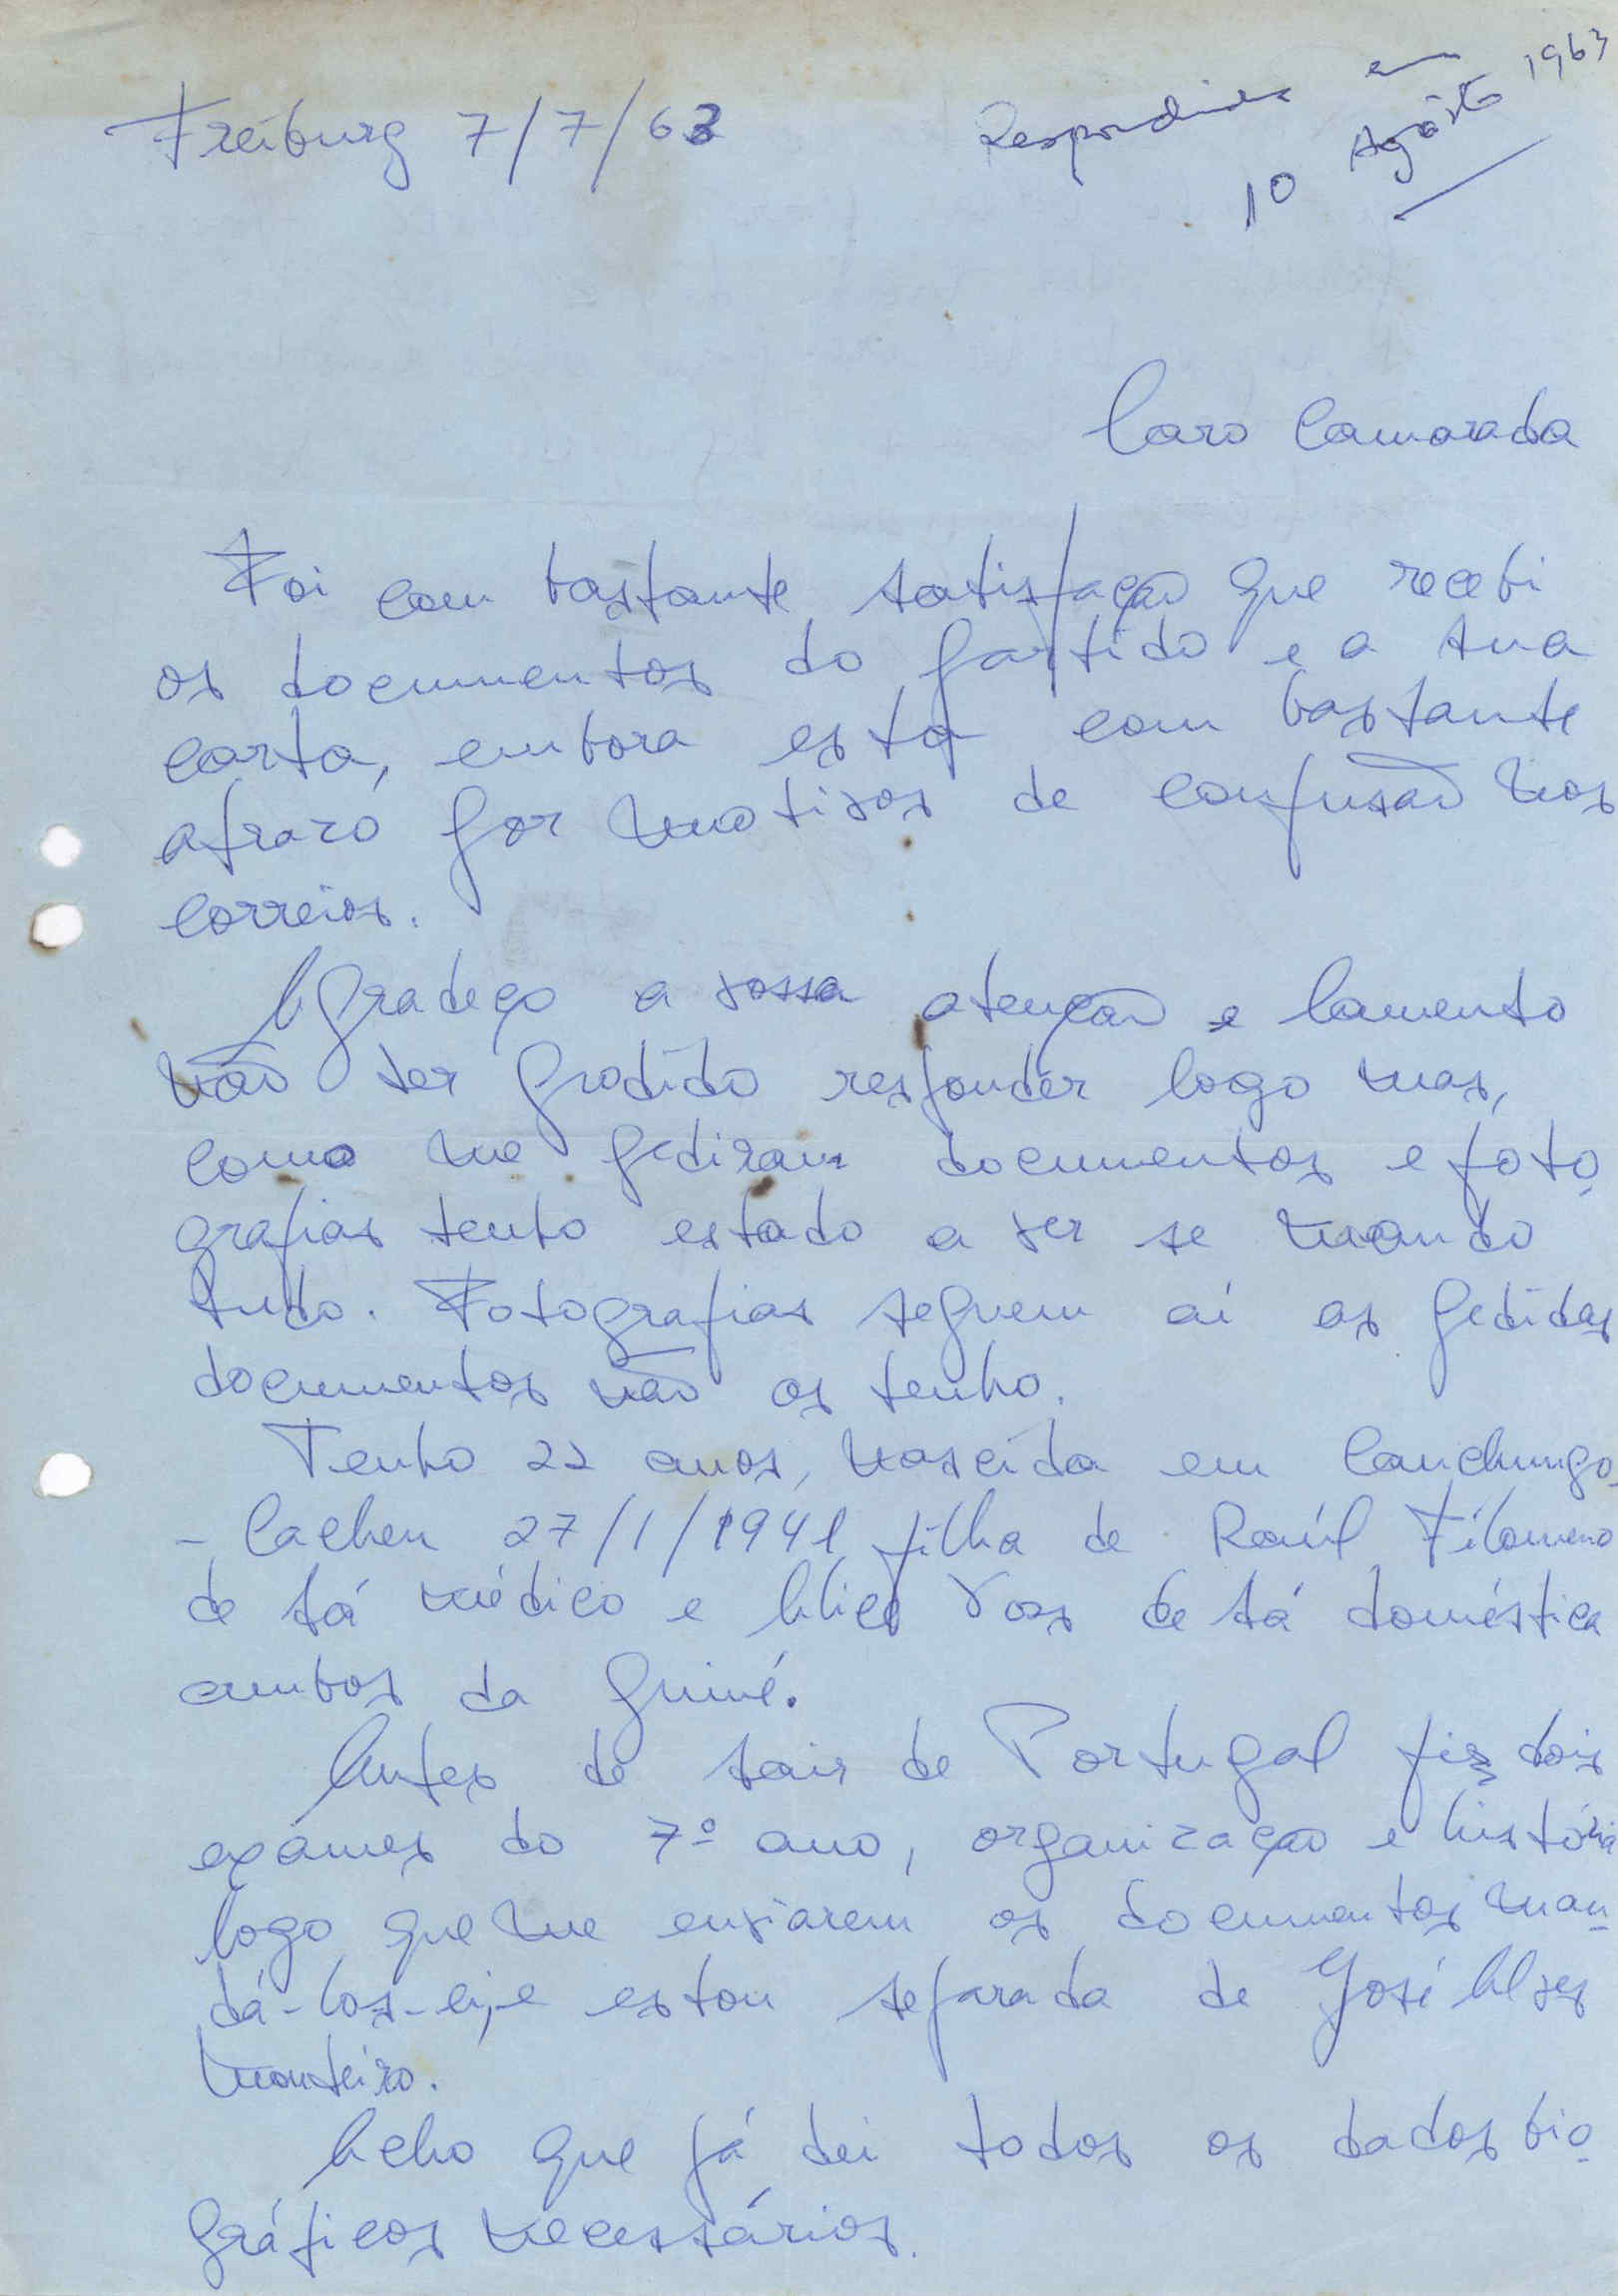 Freiburg 7/7/63
Respondida em
10 Agôsto 1963
Caro Camarada
Foi com bastante satisfação que recebi
os documentos do partido e a sua
carta, embora esta com bastante
atrazo por motivos de confusão nos
correios.
Agradeço a vossa atenção e lamento
não ter podido responder logo mas,
como me pediram documentos e foto
grafias tenho estado a ver se mando
tudo. Fotografias seguem aí as pedidas
documentos não os tenho.
Tenho 22 anos, nascida em Canchungo
- Cacheu 27/1/1941 filha de Raúl Filomeno
de Sá médico e Alice Vaz de Sá doméstica
ambos da Guiné.
Antes de sair de Portugal fiz dois
exâmes do 7º ano, organização e história
logo que me enviarem os documentos man
dá-los-ei, e estou separada de José Alves
Monteiro.
Acho que já dei todos os dados bio
gráficos necessários.